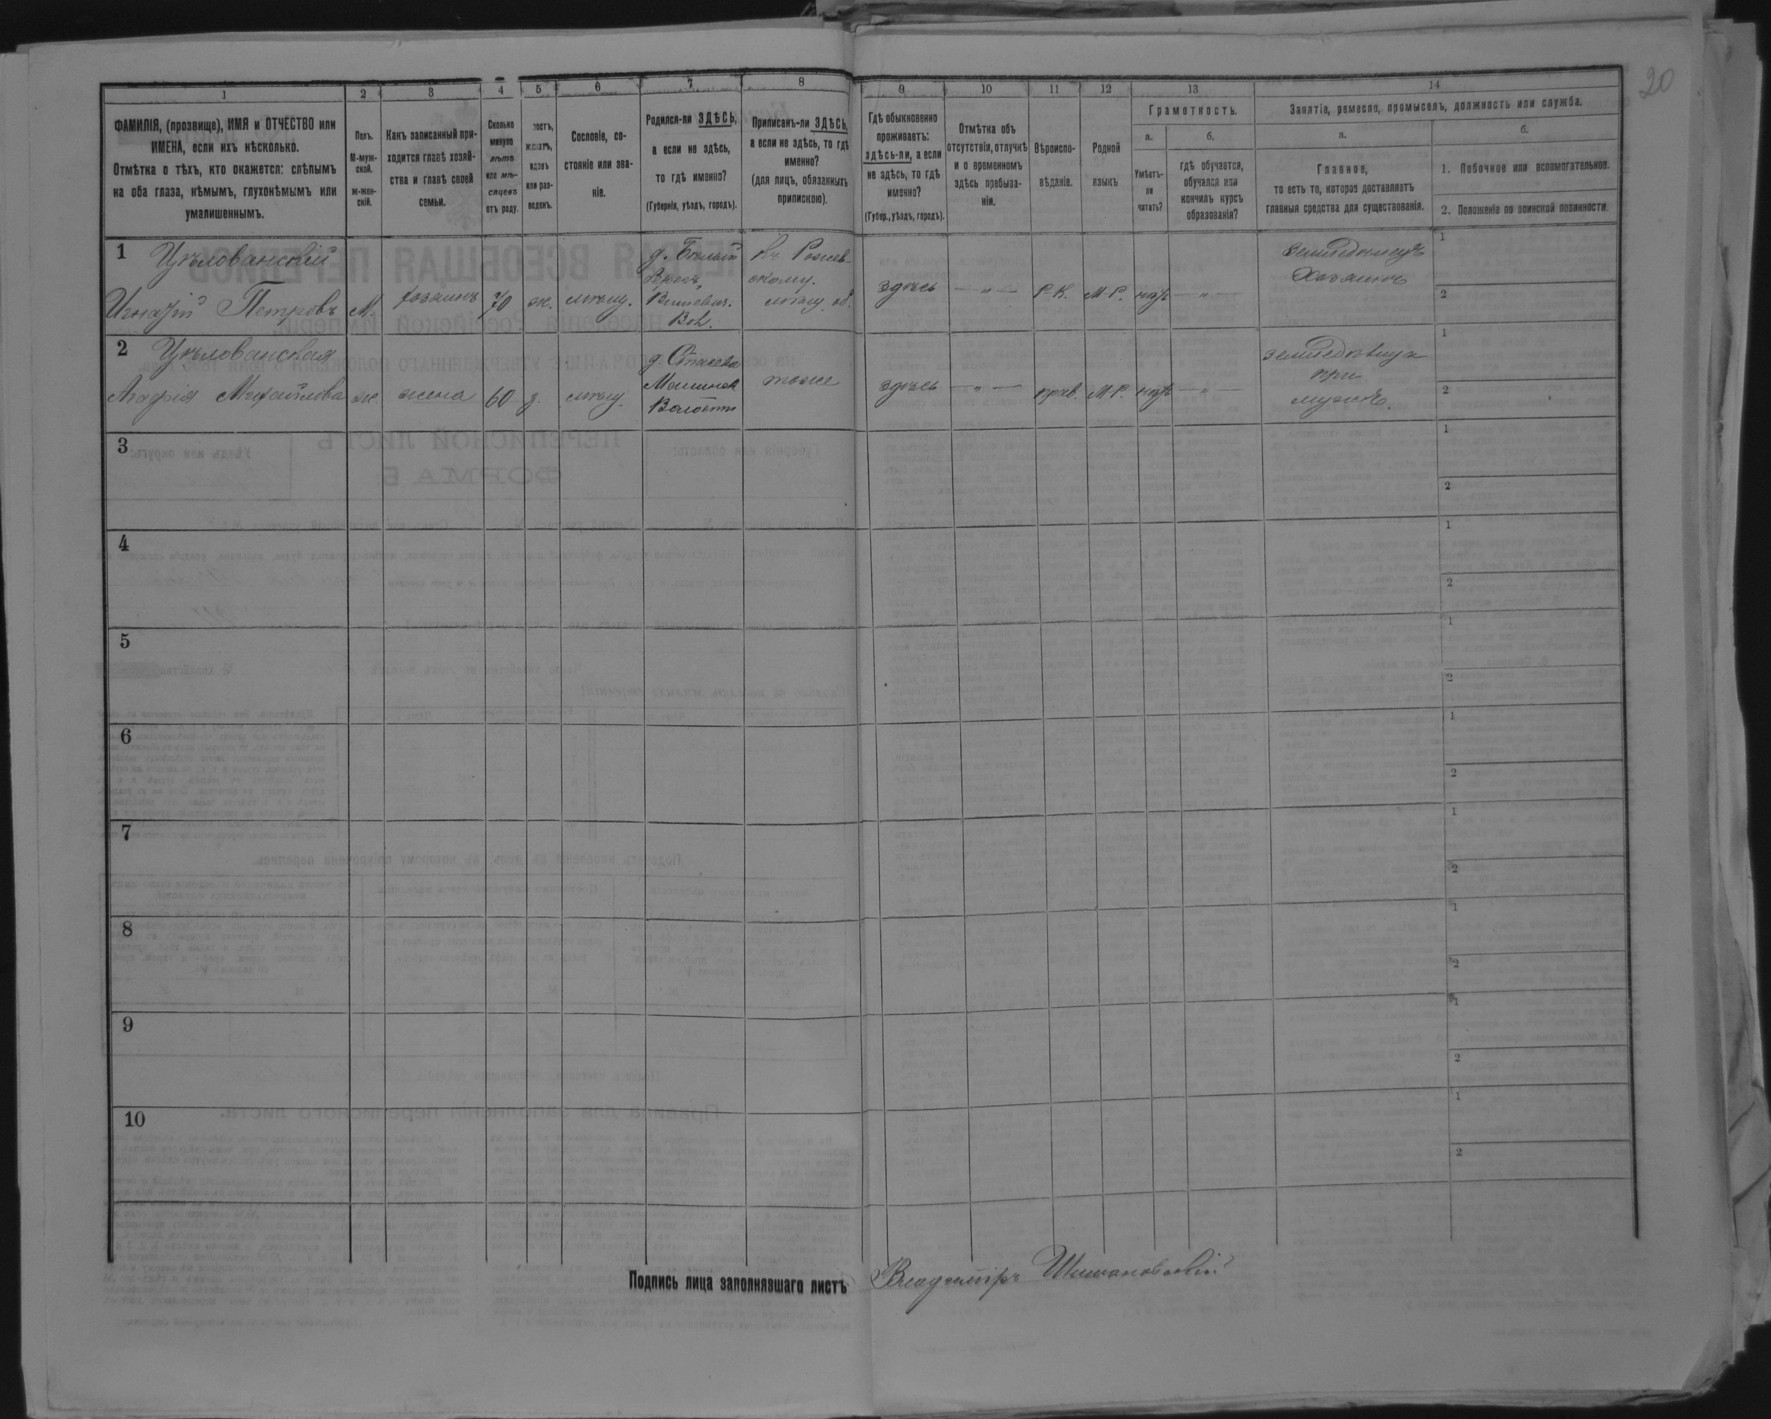 20
1 2 3 4 5 6 7 8 9 10 11 12 13 14
ФАМИЛІЯ, (прозвище), ИМЯ и ОТЧЕСТВО или
ИМЕНА, если ихъ нѣсколько.
Отмѣтка о тѣхъ, кто окажется: слѣпымъ
на оба глаза, нѣмымъ, глухонѣмымъ или
умалишеннымъ.
Полъ.
М-муж-
ской.
ж-жен-
скій.
Какъ записанный при-
ходится главѣ хозяй-
ства и главѣ своей
семьи.
Сколько
минуло
лѣтъ
или мѣ-
сяцевъ
отъ роду.
женатъ,
вдовъ
или раз-
веденъ.
Сословіе, со-
стояніе или зва-
ніе.
Родился-ли ЗДѢСЬ,
а если не здѣсь,
то гдѣ именно?
(Губернія, уѣздъ, городъ).
Приписанъ-ли ЗДѢСЬ,
а если не здѣсь, то гдѣ
именно?
(для лицъ, обязанныхъ
припискою).
Гдѣ обыкновенно
проживаетъ:
здѣсь-ли, а если
не здѣсь, то гдѣ
именно?
(Губер., уѣздъ, городъ).
Отмѣтка объ
отсутствіи, отлучкѣ
и о временномъ
здѣсь пребыва-
ніи.
Вѣроиспо-
вѣданіе.
Родной
языкъ
Грамотность.
а.
Умѣетъ-
ли
читать?
б.
гдѣ обучается,
обучался или
кончилъ курсъ
образованія?
Занятіе, ремесло, промыселъ, должность или служба.
а.
Главное,
то есть то, которое доставляетъ
главныя средства для существованія.
б.
1. Побочное или вспомогательное.
2. Положеніе по воинской повинности.
1
Цѣлованскій
Игнатій Петровъ
М.
хозяинъ
70
ж.
мѣщ.
д. Бѣлый
Вол.
мѣщ. об.
здѣсь
— " —
Р. К.
М Р.
— " —
Земледѣлецъ
Хозяинъ
1
2
2
Цѣлованская
Агафія Михайлова
ж.
жена
60
з.
мѣщ.
Волости
тоже
здѣсь
— " —
прав.
М Р.
— " —
земледѣлица
при
мужѣ.
1
2
3
1
2
4
1
2
5
1
2
6
1
2
7
1
2
8
1
2
9
1
2
10
1
2
Подпись лица заполнявшаго листъ Владиміръ